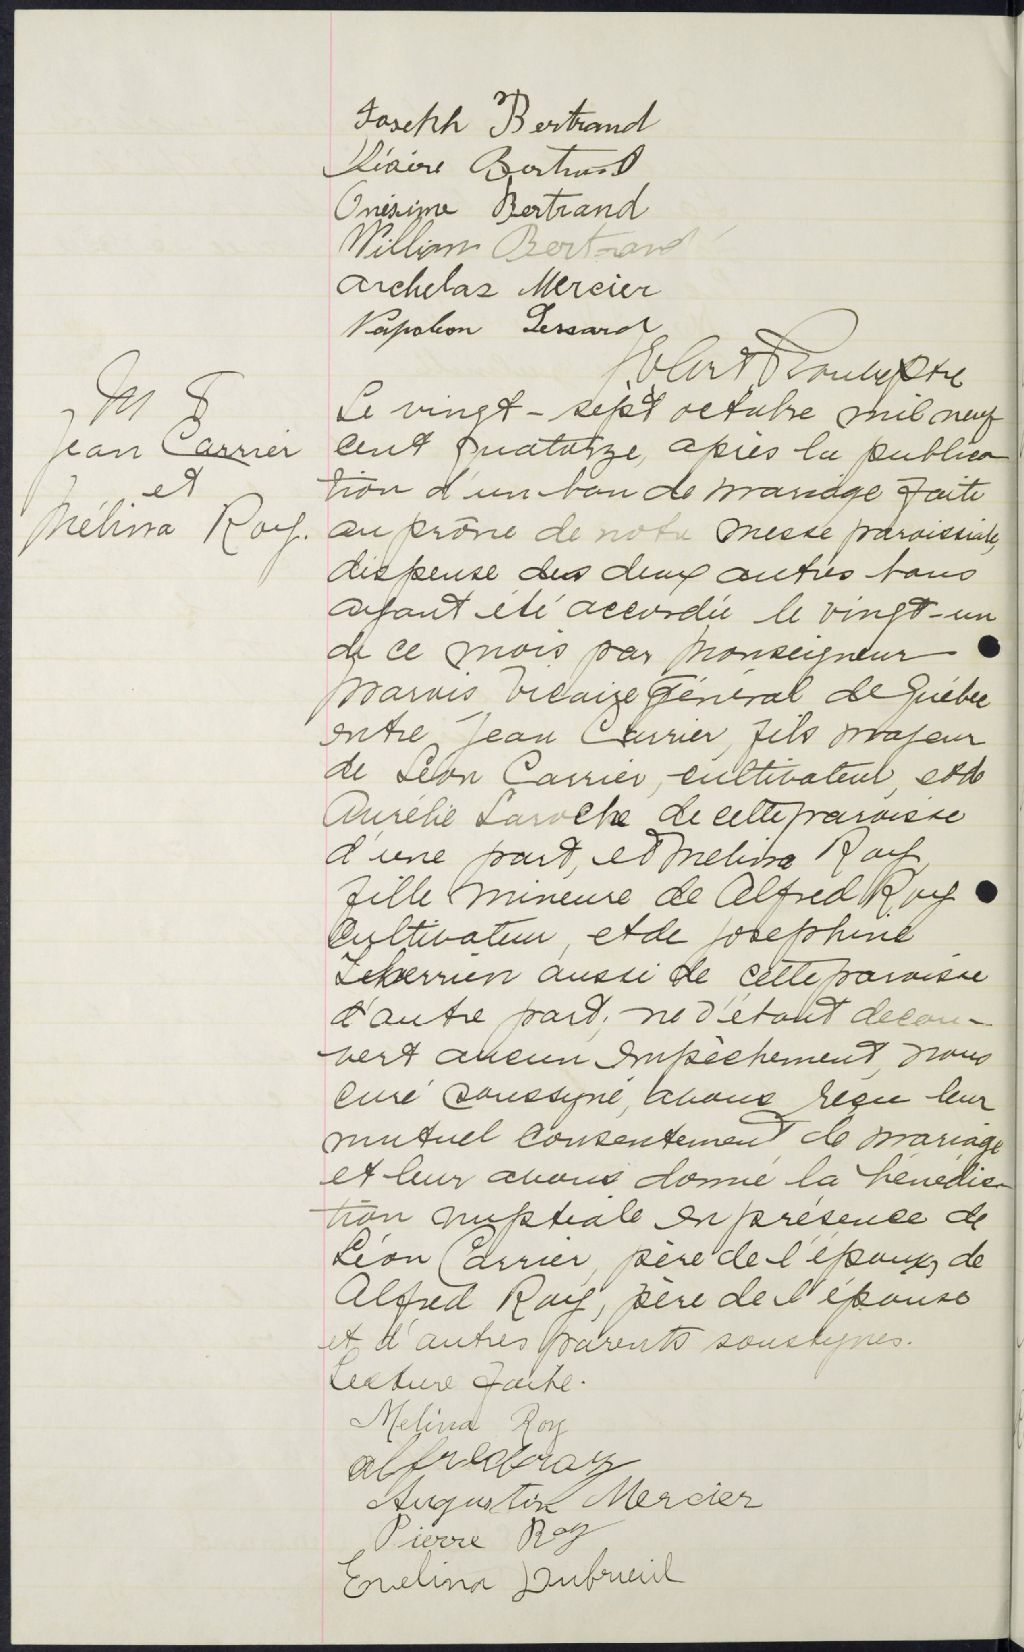 Joseph Bertrand
Bertrand
Onésime Bertrand
William Bertrand
Archelas Mercier
Napoléon Lessard
ptre
M 5
Jean Carrier
et
Mélina Roy.
Le vingt-sept octobre mil neuf
cent quatorze, après la publica
tion d'un ban de mariage faite
au prône de notre messe paroissiale,
dispense des deux autres bans
ayant été accordée le vingt-un
de ce mois par Monseigneur
Marois Vicaire Général de Québec
entre Jean Carrier, fils majeur
de Léon Carrier, cultivateur, et de
Aurélie Laroche de cette paroisse
d'une part, et Mélina Roy,
fille mineure de Alfred Roy
cultivateur, et de Josephine
Therrien aussi de cette paroisse
d'autre part; ne s'étant décou-
vert aucun empêchement, nous
curé soussigné, avons reçu leur
mutuel consentement de mariage
et leur avons donné la bénédic-
tion nuptiale en présence de
Léon Carrier, père de l'époux, de
Alfred Roy, père de l'épouse
et d'autres parents soussignés.
Lecture faite.
Mélina Roy
Alfred Roy
Augustin Mercier
Pierre Roy
Evelina Dubreuil